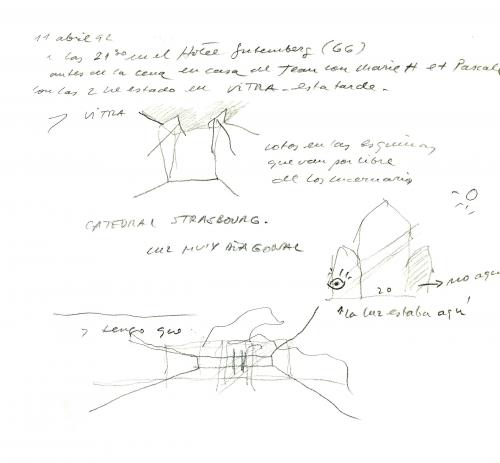 11 abril 92
a las 21³⁰ en el Hotel Gutemberg (66)
antes de la cena en casa de Jean con Marie H et Pascale
con las 2 he estado en VITRA - esta tarde -
VITRA
rotos en las esquinas
que van por libre
de los lucernarios
CATEDRAL STRASBOURG.
LUZ MUY DIAGONAL
20
no aquí
la luz estaba aquí
tengo que